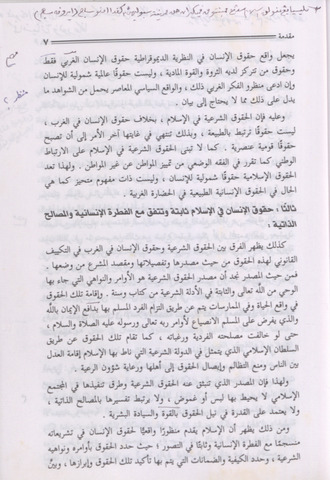 مقدمة ٧
يجعل واقع حقوق الإنسان في النظرية الديموقراطية حقوق الإنسان الغربي فقط
وحقوق من تركز لديه الثروة والقوة المادية ، وليست حقوقًا عالمية شمولية للإنسان
وإن ادعى منظرو الفكر الغربي ذلك ، والواقع السياسي المعاصر يحمل من الشواهد ما
يدل على ذلك مما لا يحتاج إلى بيان .
وعليه فإن الحقوق الشرعية في الإسلام ، بخلاف حقوق الإنسان في الغرب ،
ليست حقوقًا ترتبط بالطبيعة ، وبذلك تنتهي في غايتها آخر الأمر إلى أن تصبح
حقوقًا قومية عنصرية . كما لا تبنى الحقوق الشرعية في الإسلام على الارتباط
الوطني كما تقرر في الفقه الوضعي من تمييز المواطن عن غير المواطن . ولهذا تعد
الحقوق الإسلامية حقوقًا شمولية للإنسان ، وليست ذات مفهوم متحيز كما هي
الحال في الحقوق الإنسانية الطبيعية في الحضارة الغربية .
ثالثًا : حقوق الإنسان في الإسلام ثابتة وتتفق مع الفطرة الإنسانية والمصالح
الذاتية :
كذلك يظهر الفرق بين الحقوق الشرعية وحقوق الإنسان في الغرب في التكييف
القانوني لهذه الحقوق من حيث مصدرها وتفصيلاتها ومقصد المشرع من وضعها .
فمن حيث المصدر نجد أن مصدر الحقوق الشرعية هو الأوامر والنواهي التي جاء بها
الوحي من اللّه تعالى والثابتة في الأدلة الشرعية من كتاب وسنة . وإقامة تلك الحقوق
في واقع الحياة وفي الممارسات يتم عن طريق التزام الفرد المسلم بها بدافع الإيمان باللّه
والذي يفرض على المسلم الانصياع لأوامر ربه تعالى ورسوله عليه الصلاة والسلام ،
حتى لو خالفت مصلحته الفردية ورغباته ، كما تقام تلك الحقوق عن طريق
السلطان الإسلامي الذي يتمثل في الدولة الشرعية التي ناط بها الإسلام إقامة العدل
بين الناس ومنع التظالم وإيصال الحقوق إلى أهلها ورعاية شؤون الرعية .
ولهذا فإن المصدر الذي تنبثق عنه الحقوق الشرعية وطرق تنفيذها في المجتمع
الإسلامي لا يحيط بها لبس أو غموض ، ولا يرتبط تفسيرها بالمصالح الذاتية ،
ولا يعتمد على القدرة في نيل الحقوق بالقوة والسيادة البشرية .
ومن ذلك يظهر أن الإسلام يقدم منظورًا واقعيًّا لحقوق الإنسان في تشريعاته
منسجمًا مع الفطرة الإنسانية وثابتًا في التصور ؛ حيث حدد الحقوق بأوامره ونواهيه
الشرعية ، وحدد الكيفية والضمانات التي يتم بها تأكيد تلك الحقوق وإبرازها ، وبيَّن